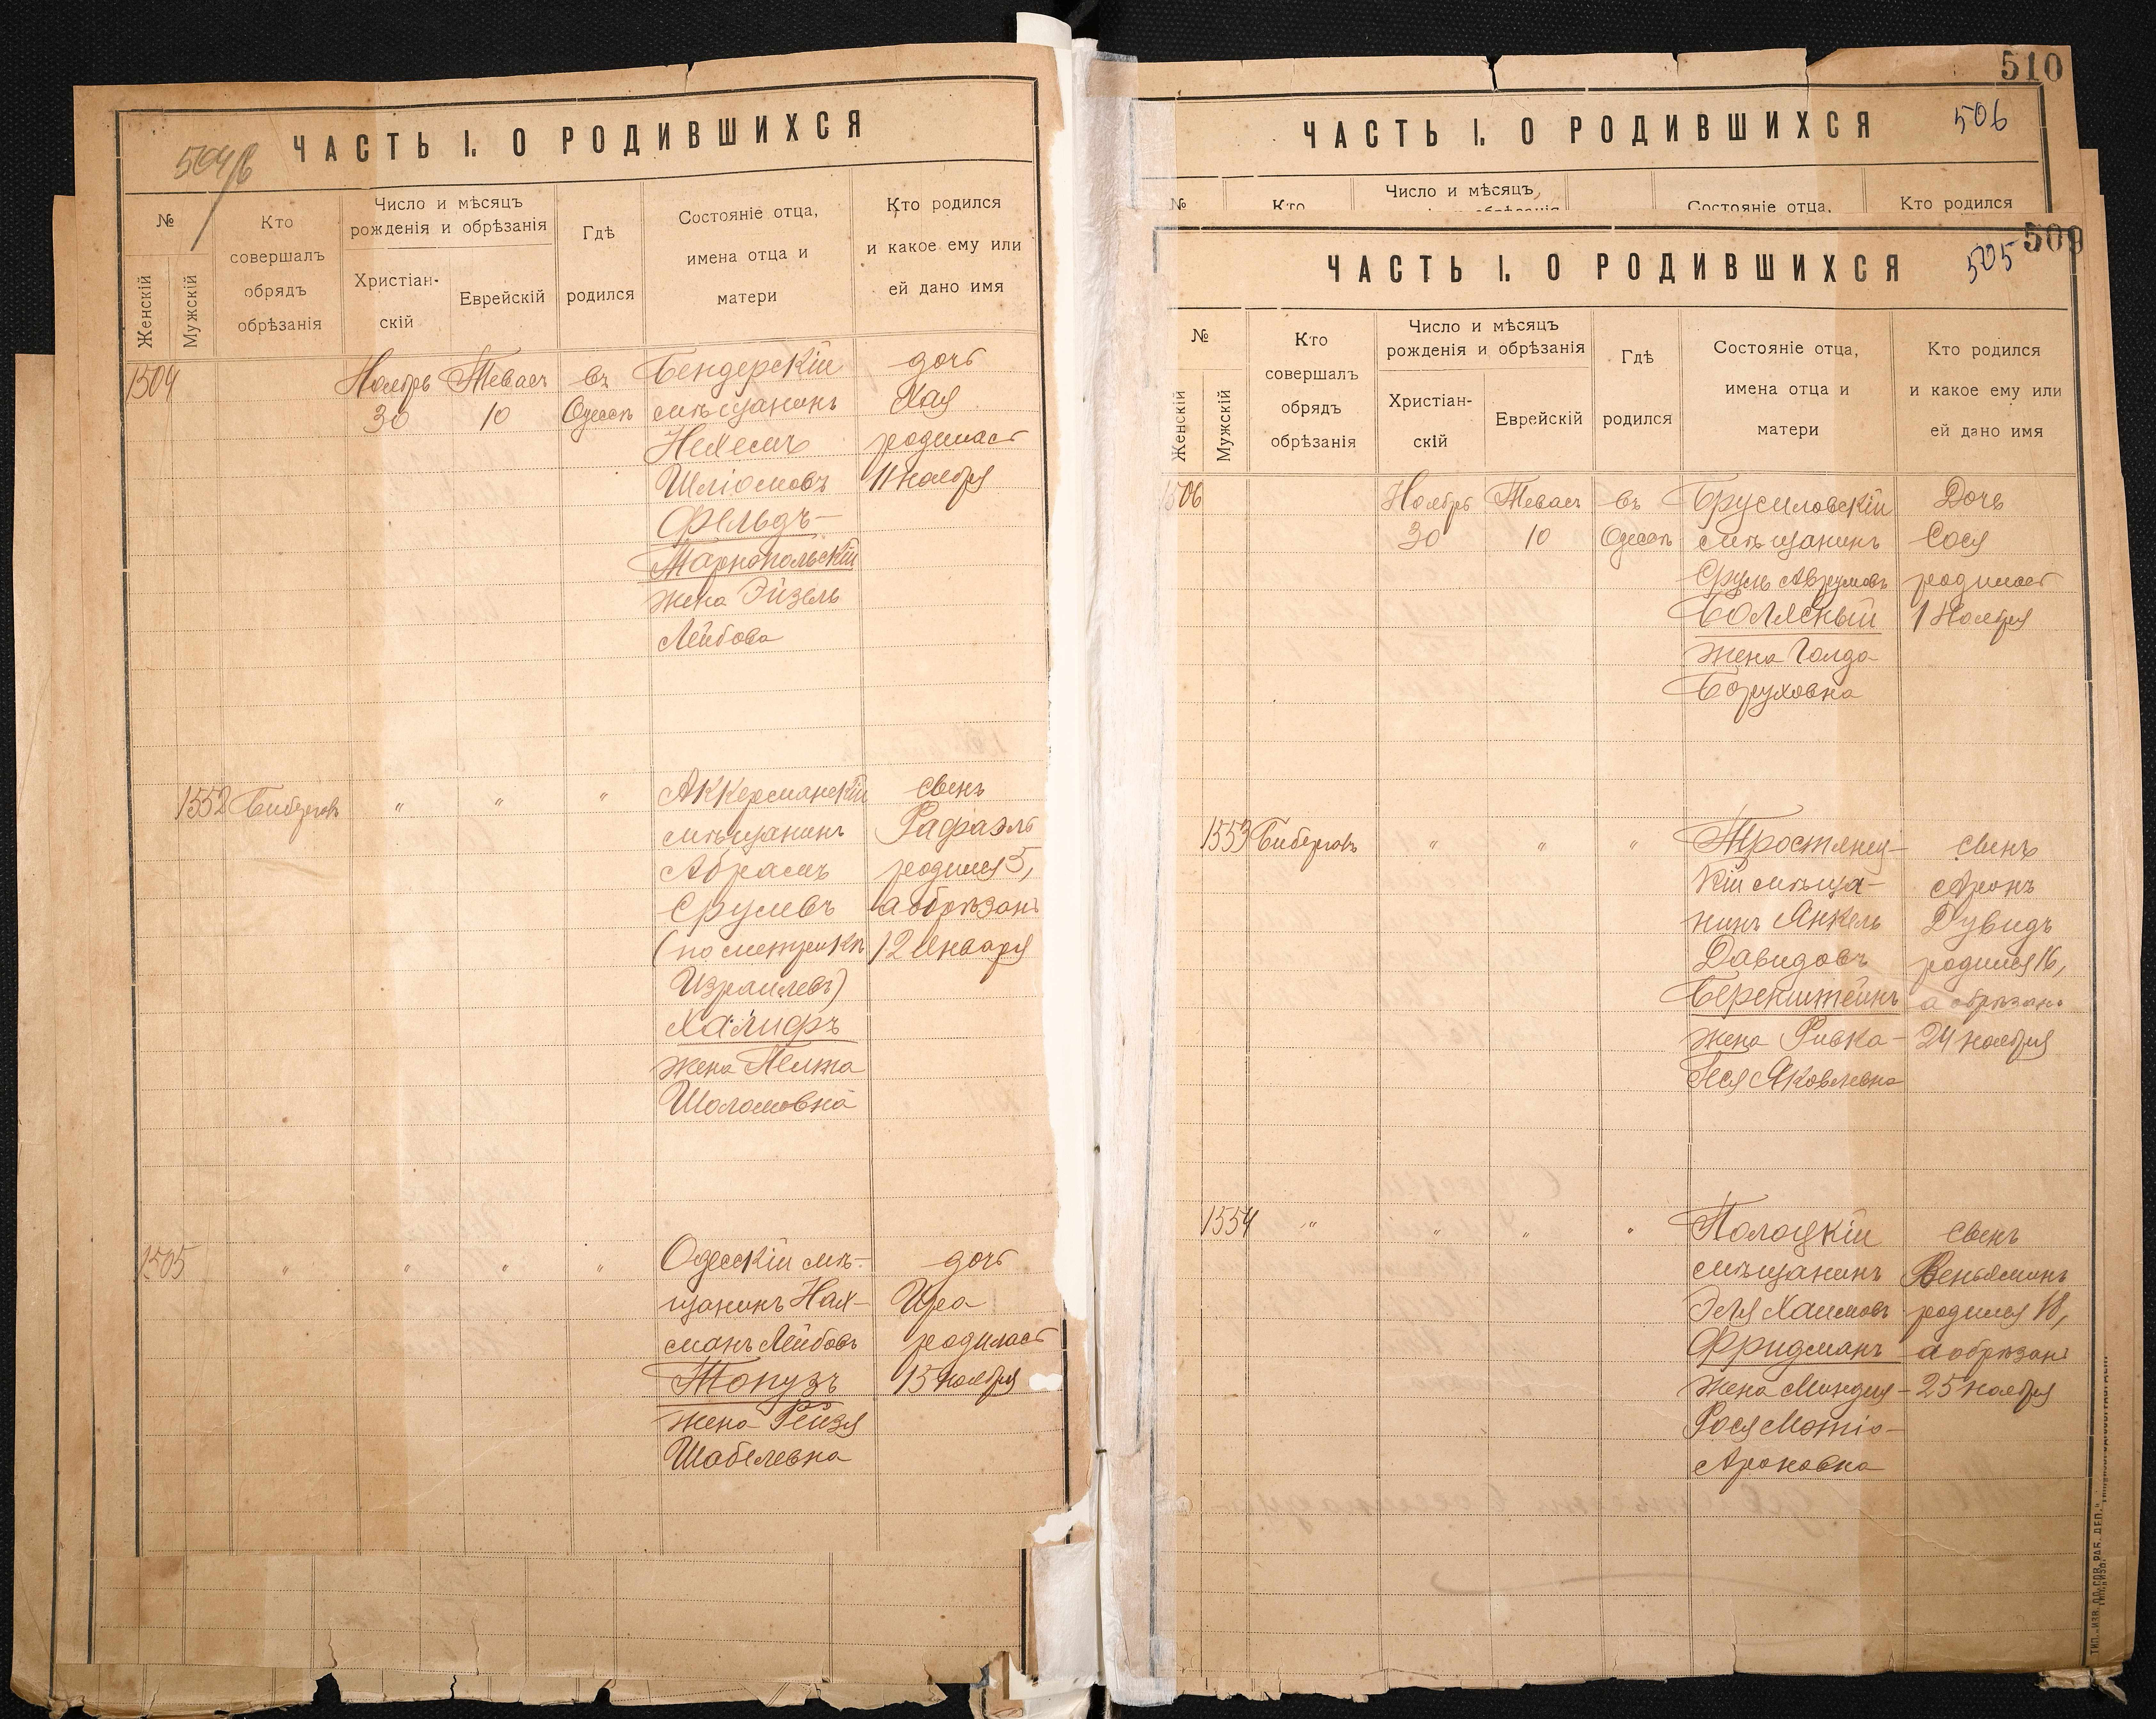 ЧАСТЬ I. О РОДИВШИХСЯ
504/б
№
Женскій
Мужскій
Кто
совершалъ
обрядъ
обрѣзанія
Число и мѣсяцъ
рожденія и обрѣзанія
Христіан-
скій
Еврейскій
Гдѣ
родился
Состояніе отца,
имена отца и
матери
Кто родился
и какое ему или
ей дано имя
1504
Ноябрь
30
Тевасъ
10
въ
Одессѣ
Бендерскій
мѣщанинъ
Нехемъ
Шліомовъ
Фельдъ-
Тарнопольскій
жена Эйзель
Лейбова
дочь
Хая
родилась
11 ноября
1552
Биберговъ
"
"
"
Аккерманскій
мѣщанинъ
Абрамъ
Срулевъ
(по метрикѣ
Израилевъ)
Халифъ
жена
Шоломовна
сынъ
Рафаэль
родился 5,
а обрѣзанъ
12 Января
1505
"
"
"
"
Одесскій мѣ-
щанинъ Нах-
манъ Лейбовъ
Топузъ
жена Рейзя
Шабелевна
дочь
Ира
родилась
15 ноября
510
506
ЧАСТЬ I. О РОДИВШИХСЯ
№
Кто
Число и мѣсяцъ
Состояніе отца,
Кто родился
509
505
ЧАСТЬ I. О РОДИВШИХСЯ
№
Женскій
Мужскій
Кто
совершалъ
обрядъ
обрѣзанія
Число и мѣсяцъ
рожденія и обрѣзанія
Христіан-
скій
Еврейскій
Гдѣ
родился
Состояніе отца,
имена отца и
матери
Кто родился
и какое ему или
ей дано имя
1506
Ноябрь
30
Тевасъ
10
въ
Одессѣ
Брусиловскій
мѣщанинъ
Сруль Аврумовъ
Болясный
жена Голда
Боруховна
Дочь
Сося
родилась
1 Ноября
1553
Биберговъ
"
"
"
Тростянец-
кій мѣща-
нинъ Янкель
Давидовъ
Беренштейнъ
жена Ривка-
Песя Яковлевна
сынъ
Аронъ
Дувидъ
родился 16,
а обрѣзанъ
24 ноября
1554
"
"
"
"
Полоцкій
мѣщанинъ
Эля Хаимовъ
Фридманъ
жена Миндля-
Рося Мотіо-
Ароновна
сынъ
Веньяминъ
родился 18,
а обрѣзанъ
25 ноября